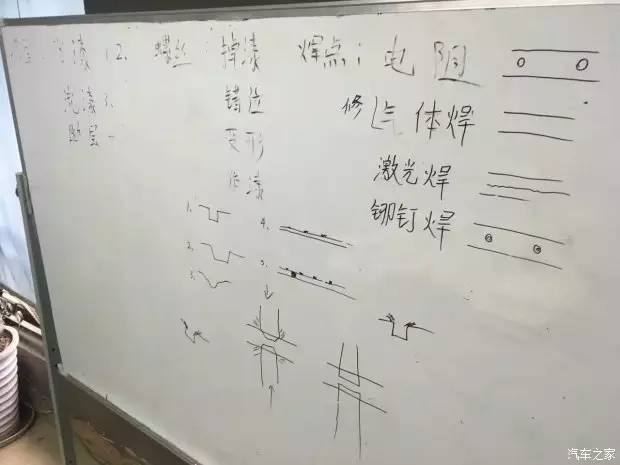 漆 2、 螺丝：掉漆 焊点：电阻
错位
变形
漆
修 气体焊
激光焊
铆钉焊
1.
2.
3.
4.
5.
汽车之家